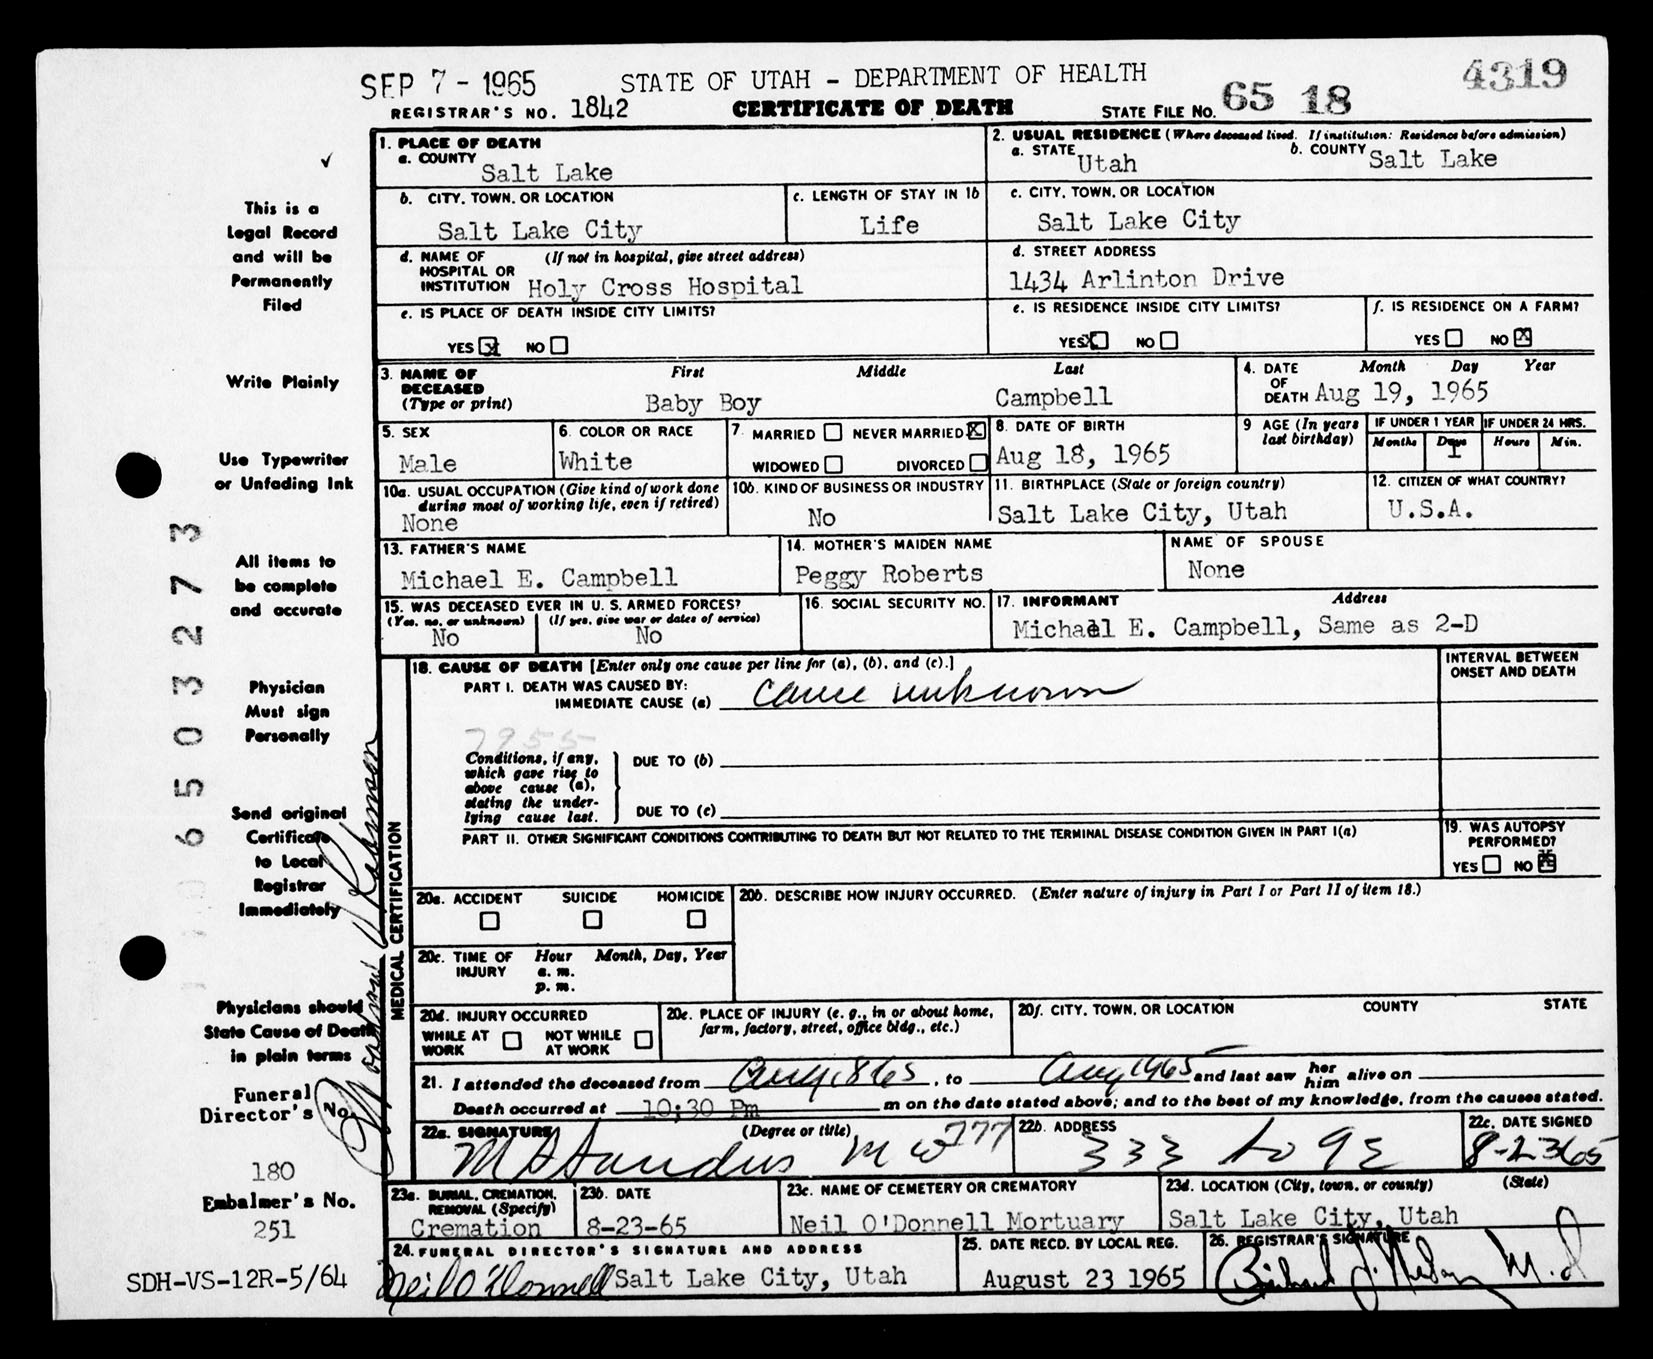 SEP 7 - 1965 STATE OF UTAH - DEPARTMENT OF HEALTH 4319
REGISTRAR'S NO. 1842 CERTIFICATE OF DEATH STATE FILE NO. 65 18
1. PLACE OF DEATH
a. COUNTY
Salt Lake
2. USUAL RESIDENCE (Where deceased lived. If institution: Residence before admission)
a. STATE Utah b. COUNTY Salt Lake
b. CITY, TOWN, OR LOCATION
Salt Lake City
c. LENGTH OF STAY IN 1b
Life
c. CITY, TOWN, OR LOCATION
Salt Lake City
d. NAME OF HOSPITAL OR INSTITUTION (If not in hospital, give street address)
Holy Cross Hospital
d. STREET ADDRESS
1434 Arlinton Drive
e. IS PLACE OF DEATH INSIDE CITY LIMITS?
YES X NO
e. IS RESIDENCE INSIDE CITY LIMITS?
YES X NO
f. IS RESIDENCE ON A FARM?
YES NO X
3. NAME OF DECEASED (Type or print) First Middle Last
Baby Boy Campbell
4. DATE OF DEATH Month Day Year
Aug 19, 1965
5. SEX
Male
6. COLOR OR RACE
White
7. MARRIED NEVER MARRIED X
WIDOWED DIVORCED
8. DATE OF BIRTH
Aug 18, 1965
9 AGE (In years last birthday)
IF UNDER 1 YEAR IF UNDER 24 HRS.
Months Days Hours Min.
1
10a. USUAL OCCUPATION (Give kind of work done during most of working life, even if retired)
None
10b. KIND OF BUSINESS OR INDUSTRY
No
11. BIRTHPLACE (State or foreign country)
Salt Lake City, Utah
12. CITIZEN OF WHAT COUNTRY?
U.S.A.
13. FATHER'S NAME
Michael E. Campbell
14. MOTHER'S MAIDEN NAME
Peggy Roberts
NAME OF SPOUSE
None
15. WAS DECEASED EVER IN U. S. ARMED FORCES?
(Yes, no, or unknown) (If yes, give war or dates of service)
No No
16. SOCIAL SECURITY NO.
17. INFORMANT Address
Michael E. Campbell, Same as 2-D
MEDICAL CERTIFICATION
18. CAUSE OF DEATH [Enter only one cause per line for (a), (b), and (c).]
INTERVAL BETWEEN ONSET AND DEATH
PART I. DEATH WAS CAUSED BY:
IMMEDIATE CAUSE (a) cause unknown
7955
Conditions, if any, which gave rise to above cause (a), stating the underlying cause last.
DUE TO (b)
DUE TO (c)
PART II. OTHER SIGNIFICANT CONDITIONS CONTRIBUTING TO DEATH BUT NOT RELATED TO THE TERMINAL DISEASE CONDITION GIVEN IN PART I(a)
19. WAS AUTOPSY PERFORMED?
YES NO X
20a. ACCIDENT SUICIDE HOMICIDE
20b. DESCRIBE HOW INJURY OCCURRED. (Enter nature of injury in Part I or Part II of item 18.)
20c. TIME OF INJURY Hour Month, Day, Year
a. m.
p. m.
20d. INJURY OCCURRED
WHILE AT WORK NOT WHILE AT WORK
20e. PLACE OF INJURY (e. g., in or about home, farm, factory, street, office bldg., etc.)
20f. CITY, TOWN, OR LOCATION COUNTY STATE
21. I attended the deceased from Aug 18 65, to Aug 1965 and last saw her him alive on
Death occurred at 10;30 Pm m on the date stated above; and to the best of my knowledge, from the causes stated.
22a. SIGNATURE (Degree or title) 777
22b. ADDRESS
333 so 9 E
22c. DATE SIGNED
8-23 65
23a. BURIAL, CREMATION, REMOVAL (Specify)
Cremation
23b. DATE
8-23-65
23c. NAME OF CEMETERY OR CREMATORY
Neil O'Donnell Mortuary
23d. LOCATION (City, town, or county) (State)
Salt Lake City, Utah
24. FUNERAL DIRECTOR'S SIGNATURE AND ADDRESS
Neil O'Donnell Salt Lake City, Utah
25. DATE RECD. BY LOCAL REG.
August 23 1965
26. REGISTRAR'S SIGNATURE
M.D
This is a
Legal Record
and will be
Permanently
Filed
Write Plainly
Use Typewriter
or Unfading Ink
All items to
be complete
and accurate
Physician
Must sign
Personally
Send original
Certificate
to Local
Registrar
Immediately
Physicians should
State Cause of Death
in plain terms
Funeral
Director's No.
180
Embalmer's No.
251
SDH-VS-12R-5/64
6 5 0 3 2 7 3